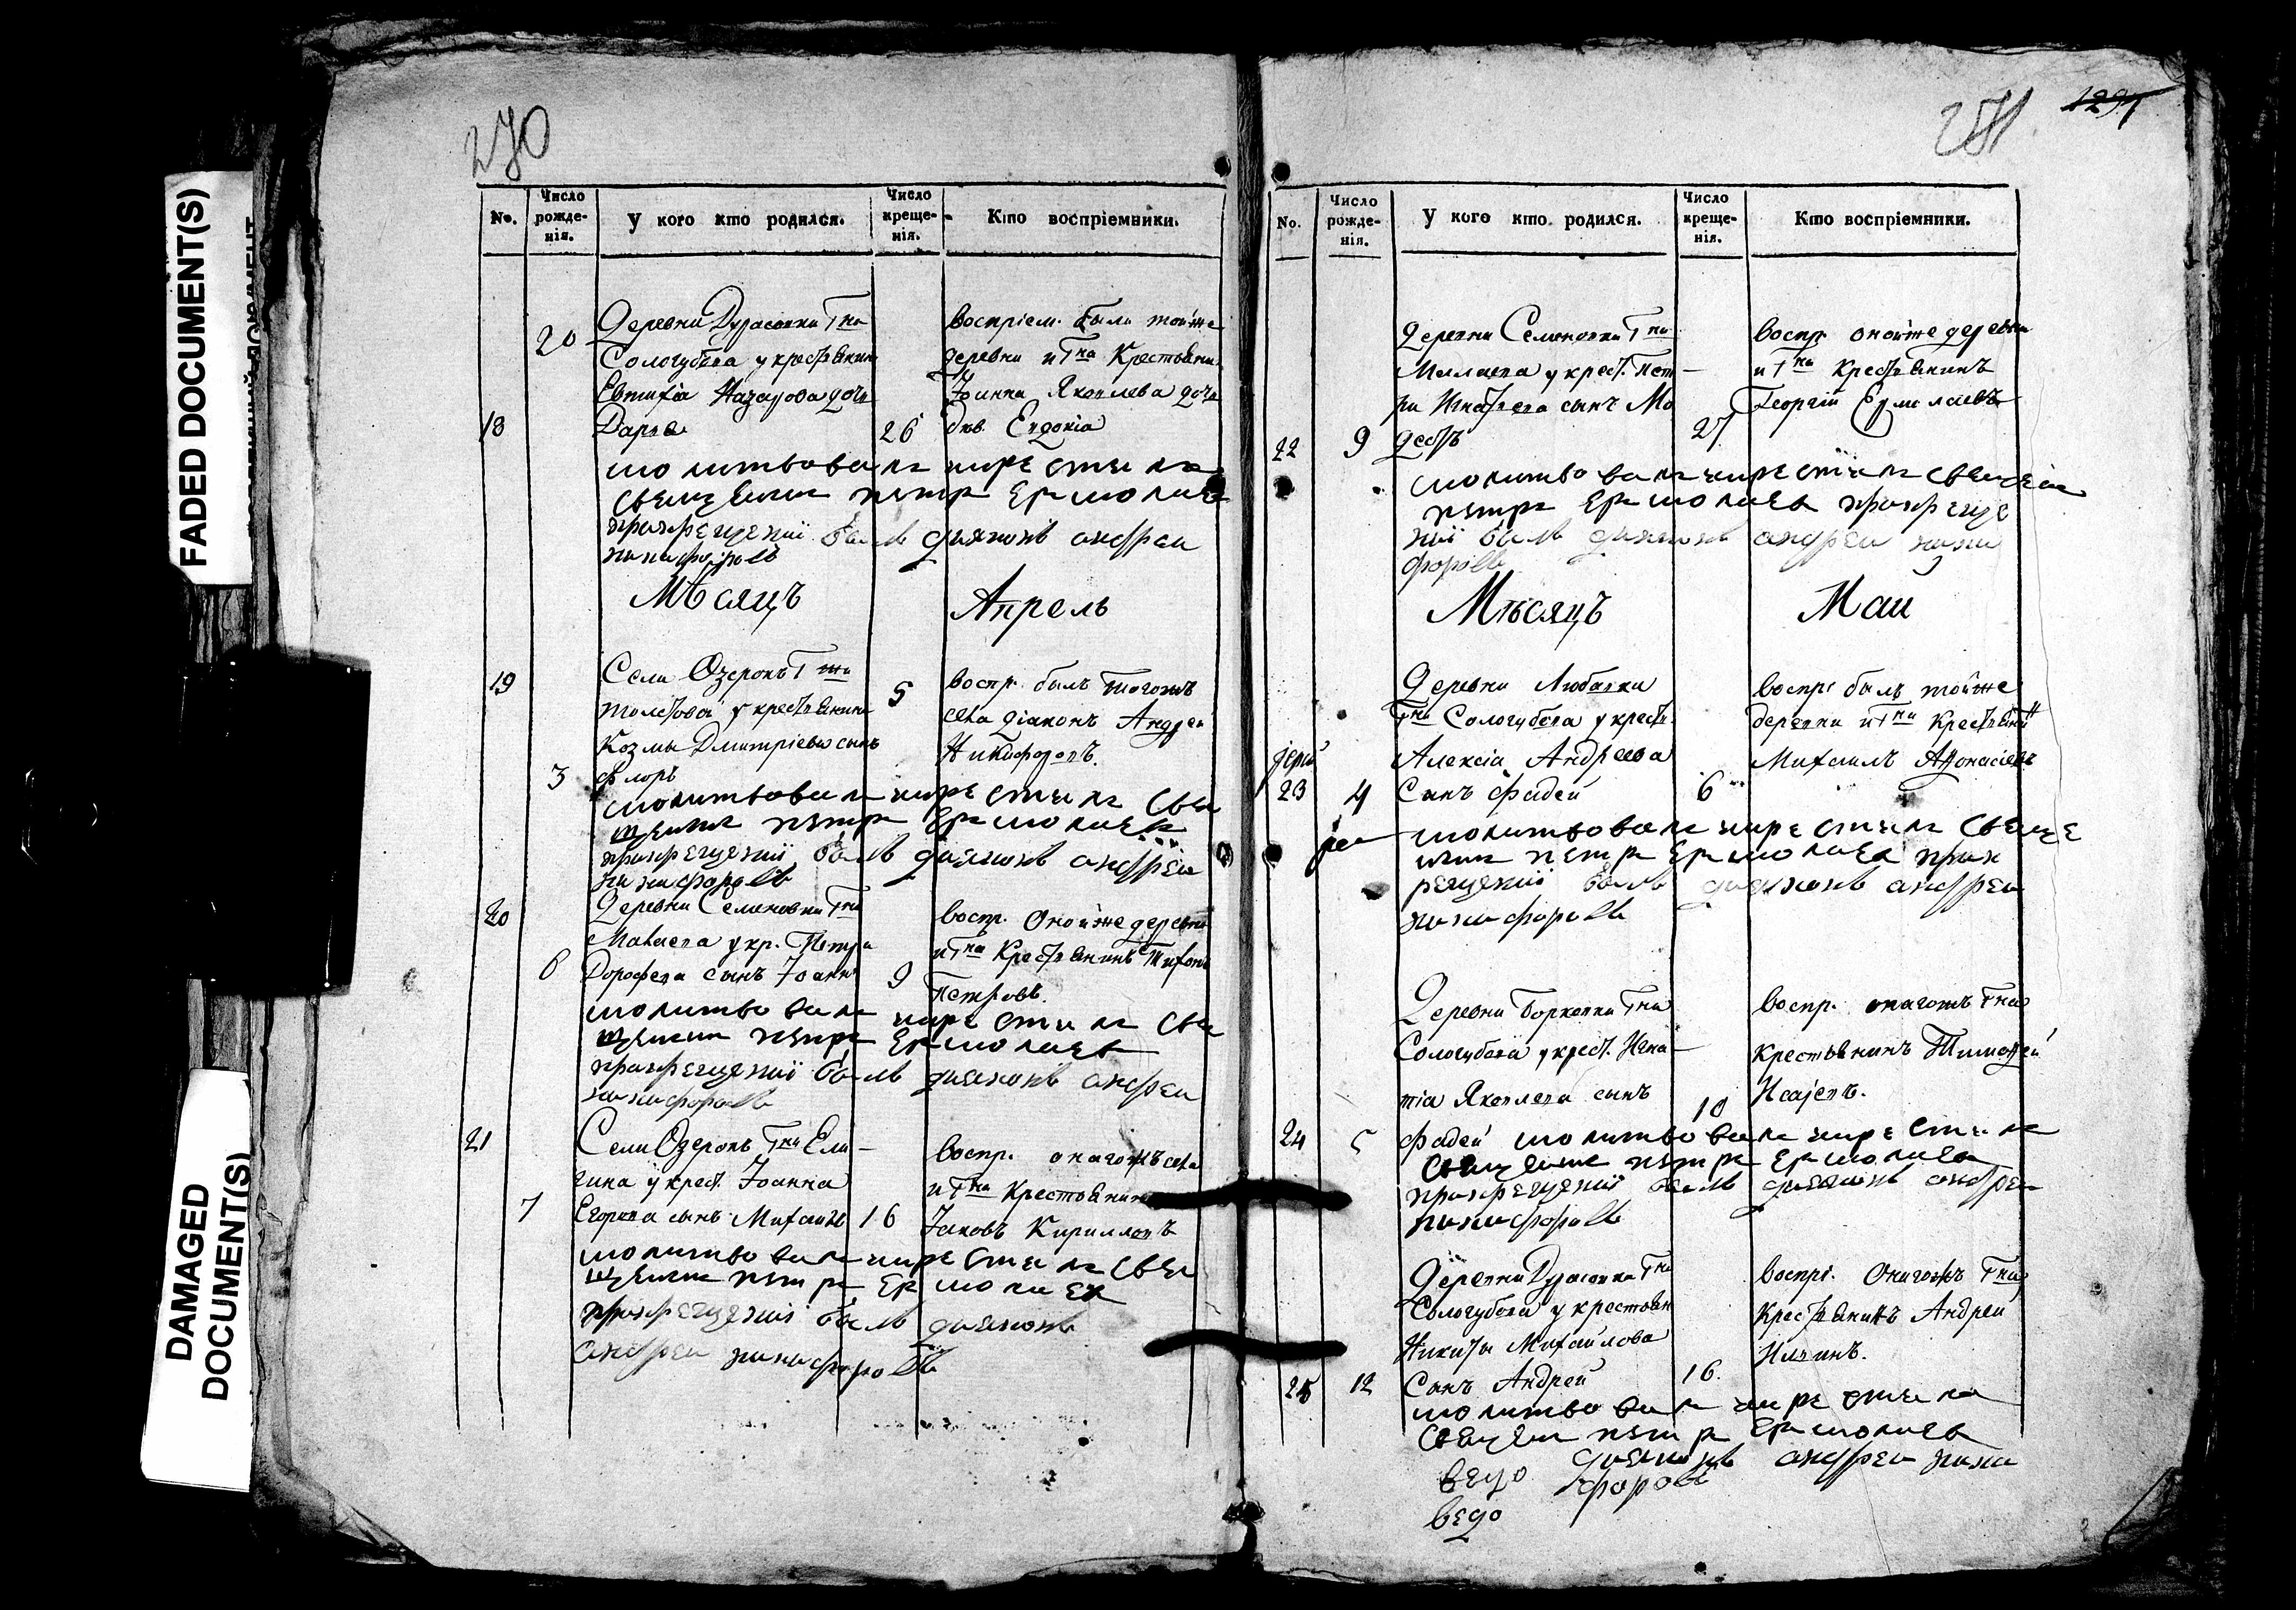 FADED DOCUMENT(S)
DAMAGED
DOCUMENT(S)
270
No.
Число
рожде-
нія.
У кого кто родился.
Число
креще-
нія.
Кто воспріемники.
20
Деревни Дурасовки Гна
Сологубова у крестьянина
Евтихіа Назарова дочь
18
Дарья
26
Воспріем. была тойже
деревни и Гна Крестьяни
Іоанна Яковлева дочь
дѣв. Евдокіа
молитвовалъ и крестилъ
священникъ петръ Ермолаевъ
при крещеніи былъ диаконъ андреи
никифоровъ
Мѣсяцъ Апрель
19
Села Озерокъ Гжи
Толстовой у крестьянина
Козмы Дмитріева сынъ
3
Флоръ
5
воспр. былъ тогожъ
села діаконъ Андреи
Никифоровъ.
молитвовалъ и крестилъ свя
щеникъ петръ Ермолаевъ
при крещеніи былъ диаконъ андреи
никифоровъ
20
Деревни Семеновки Гна
у кр. Петра
6
Дорофеева сынъ Іоаннъ
9
воспр. Онойже деревни
и Гна Крестьянинъ Тихонъ
Петровъ.
молитвовалъ и крестилъ свя
щеникъ петръ Ермолаевъ
при крещеніи былъ диаконъ андреи
никифоровъ
21
Села Озерокъ Гна Ела-
гина у крест. Іоанна
7
Егорова сынъ Михаилъ
16
воспр. онагожъ села
и Гна Крестьянинъ
Іаковъ Кирилловъ
молитвовалъ и крестилъ свя
щеникъ петръ Ермолаевъ
при крещеніи былъ диаконъ
андреи никифоровъ
271
1291
No.
Число
рожде-
нія.
У кого кто родился.
Число
креще-
нія.
Кто воспріемники.
Деревни Семеновки Гна
у крест. Пет-
ра Игнатьева сынъ Мо
22
9
дестъ
27
воспр. онойже деревни
и Гна Крестьянинъ
Георгій Ермолаевъ
молитвовалъ и крестилъ священик
петръ Ермолаевъ при креще
ніи былъ диаконъ андреи ники
форовъ
Мѣсяцъ Маи
Деревни Любавки
Гна Сологубова у крест.
іерей
Алексіа Андреева
23
4
Сынъ Фадей
6
воспр. былъ тойже
деревни и Гна Крестьянинъ
Михаилъ Афонасіевъ
молитвовалъ и крестилъ свяще
никъ петръ Ермолаевъ при к
рещеніи былъ диаконъ андреи
никифоровъ
Деревни Борковки Гна
Сологубова у крест. Игна-
тіа Яковлева сынъ
24
5
Фадей
10
воспр. онагожъ Гна
Крестьянинъ Тимофей
Исаіевъ.
молитвовалъ и крестилъ
священикъ петръ Ермолаевъ
при крещеніи былъ диаконъ андреи
никифоровъ
Деревни Дурасовки Гна
Сологубова у крестьян
Никиты Михаилова
25
12
Сынъ Андрей
16.
воспрі. Онагожъ Гна
Крестьянинъ Андреи
Ильинъ.
молитвовалъ и крестилъ
священик петръ Ермолаевъ
диаконъ андреи ники
форовъ